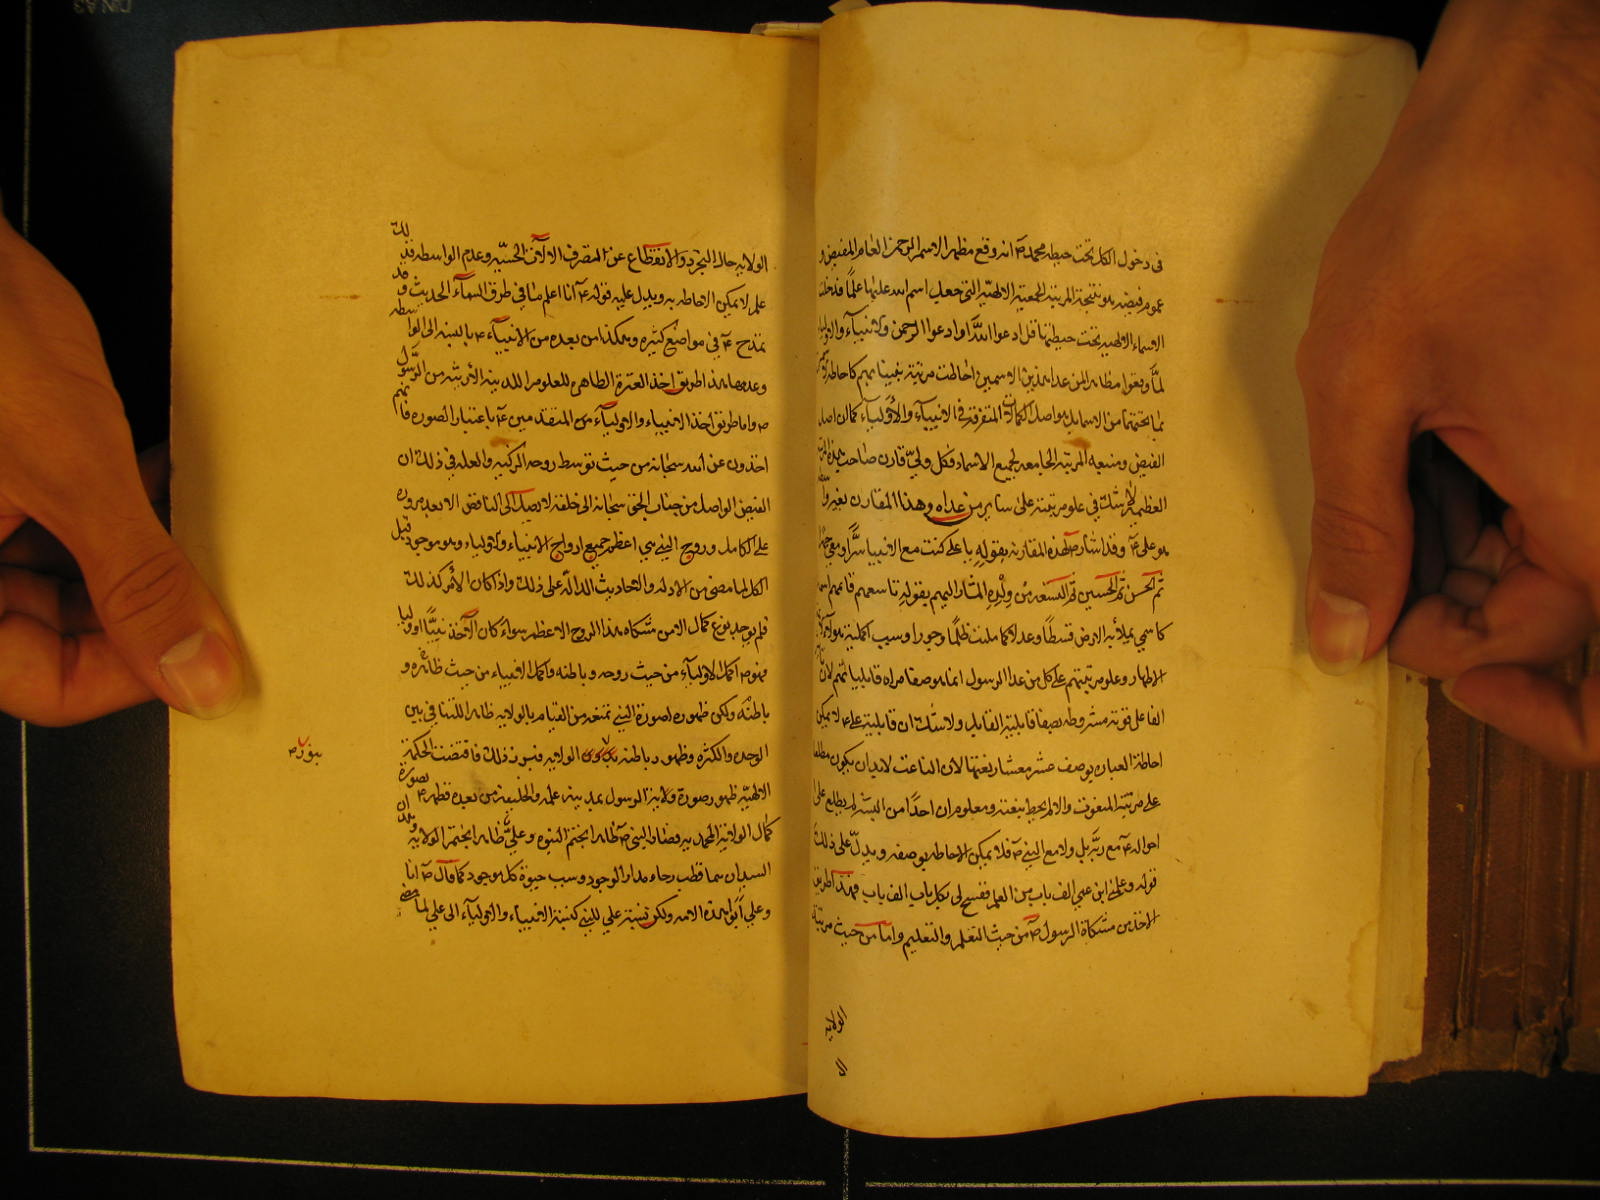 في دخول الكل تحت حيطه محمد ص انه وقع مظهر الاسم الرحمن العام المفيض و
عموم فيضه هو نتيجة المرتبة الجمعية الالهية التي جعل اسم الله عليها علما فدخلت
الاسماء الالهية تحت حيطتها قل ادعوا الله او ادعوا الرحمن والانبياء والاوليا
لما وقعوا مظاهر لمن عدا هذين الاسمين احاطت مرتبة نبينا بهم كاحاطة
بما تحتهما من الاسماء بل هو اصل الكمالات المتفرقة في الانبياء والاولياء كما ان اصل
الفيض ومنبعه المرتبة الجامعه لجميع الاسماء فكل ولي قارن صاحب هذه
العظمي لا شك في علو مرتبته على ساير من عداه وهذا المقارن بغير
هو علي ع وقد اشار ص لهذه المقارنة بقوله يا علي كنت مع الانبيا سرا ومعي جهرا
ثم الحسن ثم الحسين ثم التسعة من ولده المشار اليهم بقوله تاسعهم قائمهم
كاسمي يملأ به الارض قسطا وعدلا كما ملئت ظلما وجورا وسبب اكملية هؤلاء
الاطهار وعلو مرتبتهم على كل من عدا الرسول انما هو صفا مراة قابلياتهم لان
الفاعل قوته مشروطه بصفا قابلية القابل ولا شك ان قابلية علي ع لا يمكن
احاطة العبارة بوصف عشر معشار نعتها لان الناعت لابد ان يكون مطلعا
على مرتبة المنعوت والا لم يحط بنعته ومعلوم ان احدا من البشر لم يطلع على
احواله ع مع ربه بل ولا مع النبي ص فلا يمكن الاحاطه بوصفه ويدل على ذلك
قوله وعلمني ابن عمي الف باب من العلم ففتح لي بكل باب الف باب فهذا طريق
الاخذ من مشكاة الرسول ص من حيث التعلم والتعليم واما من حيث مرتبة
الولايه
الولايه حال التجرد والانقطاع عن التصرف الالات الحسيه وعدم الواسطه فذلك
علم لا يمكن الاحاطه به ويدل عليه قوله ع انا اعلم منا في طرق السماء الحديث وقد
تمدح ع في مواضع كثيره وهكذا من بعده من الانبياء ع بالنسبه الى الواسطه
وعدمها هذا طريق اخذ العترة الطاهره للعلوم اللدنيه الارثيه من الرسول
ص واما طريق اخذ الانبياء والاولياء من المتقدمين ع باعتبار الصوره فانهم
اخذون عن الله سبحانه من حيث توسط روحه الزكيه والعله في ذلك ان
الفيض الواصل من جناب الحق سبحانه الى خلقه لا يصل الى الناقص الا بعد مروره
على الكامل وروح النبي هي اعظم جميع ارواح الانبياء والاولياء وهو موجود قبل
الكل لما مضى من الادله والاحاديث الداله على ذلك واذا كان الأمر كذلك
فلم يوجد نوع كمال الا من مشكاه هذا الروح الاعظم سواء كان الآخذ نبيا او وليا
فهو ص اكمل الاولياء من حيث روحه وباطنه واكمل الانبياء من حيث ظاهره و
باطنه ولكن ظهوره لصورة النبي تمنعه من القيام بالولايه ظاهرا للتنافي بين
الوحده والكثره وظهور باطنه الولايه فبون ذلك فاقتضت الحكمة
الالهيه ظهور صورة ولاية الرسول بمدينة علمه والخليفة من بعده فظهر ع بصورة
كمال الولاية المحمديه فصار النبي ص ظاهرا بختم النبوه وعلي ع ظاهرا بختم الولايه وان
السيدان هما قطب رحاء مدار الوجود وسبب حيوة كل موجود كما قال ص انا
وعلي ابوا هذه الامه ولكن نسبة علي للنبي كنسبة الانبياء والاولياء الى علي لما مضى